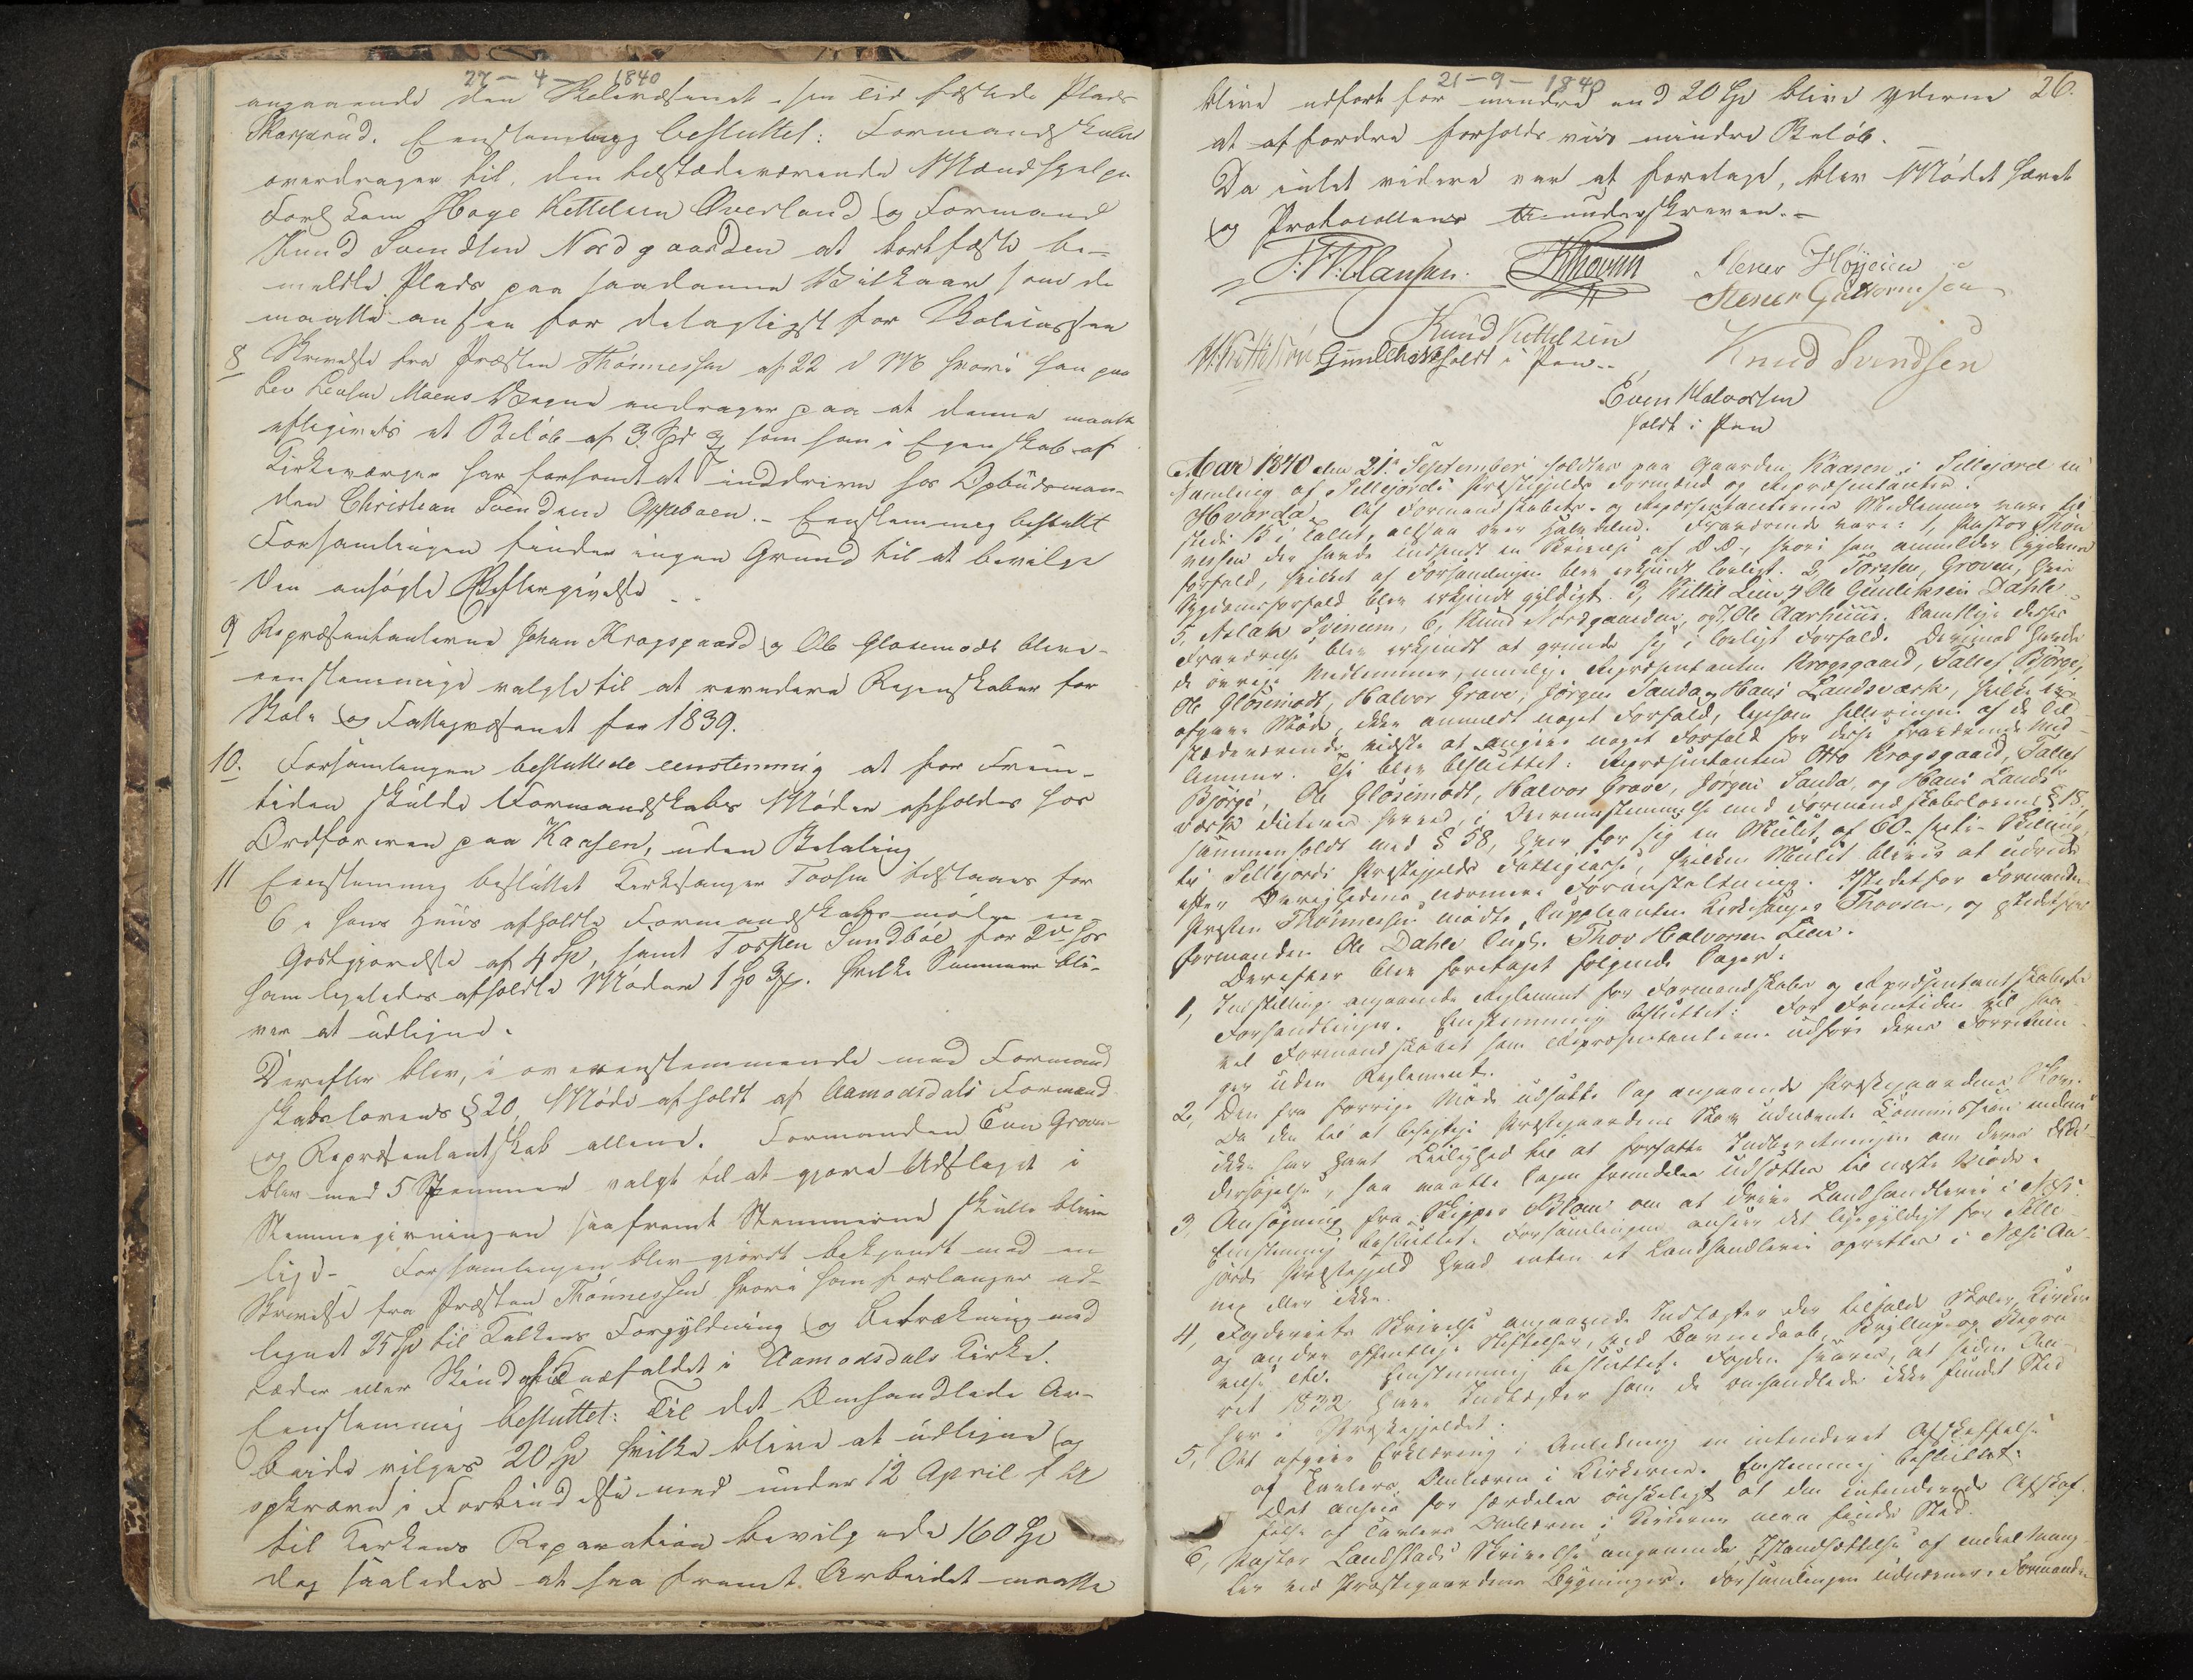 27 - 4 - 1840
angaaende den Skolevæsenet i sin Tid fæstede Plads
Skarprud. Eenstemmig besluttet: Formandskabet
overdrager til den tilstædeværende Mændhjelper
Hage Kettelsen Øverland og Formand
Knud Svendsen Nordgaarden at bortfæste be-
meldte Plads paa saadanne Vilkaar som de
maatte ansee for delagtigst for Skolecassen
8 Skrivelse fra Præsten Thönnessen af 22 d M hvori han paa
Lev Leufsen Moens Vegne andrager paa at denne maatte
eftergives et Belöb af 3 Spd som han i Egenskab af
Kirkeværger har forsömt at inddrive hos Opbudsman-
den Christian Svendsen Oppeboen. - Eenstemmig besluttet
Forsamlingen finder ingen Grund til at bevilge
den ansögte Eftergivelse
9 Repræsentanterne Johan Krogsgaard og Ole Glosemodt bleve
eenstemmige valgte til at revidere Regnskaber for
Skole og Fattigvæsenet for 1839.
10. Forsamlingen besluttede eenstemmig at for Frem-
tiden skulde Formandskabs Möder afholdes hos
Ordföreren paa Kaasen, uden Betaling
11 Eenstemmig besluttet Kirkesanger Toosen tilstaaes for
6 i hans Huus afholdte Formandskabsmöder en
Godtgjörelse af 4 Sp, samt Torsten Sundböe for 2de hos
ham ligeledes afholdte Möder 1 Sp. hvilke Summer bli-
ver at udligne.
Derefter blev, i overeenstemmende med Formand
skabslovens § 20, Möde afholdt af Aamodsdals Formænd
og Repræsentantskab allene. Formanden Even Groven
blev med 5 Stemmer valgt til at gjöre Udslaget i
Stemmegivningen saafremt Stemmerne skulle blive
lige - Forsamlingen blev gjordt bekjendt med en
Skrivelse fra Præsten Thönnessen hvori han forlanger ud-
lignet 25 Sp til Kalkens Forgyldning og Betrækning med
Læder eller Skind i Aamodsdals Kirke.
Eenstemmig besluttet: Til det Omhandlede Ar-
beide vilges 20 Sp hvilke blive at udligne og
opkræve i Forbindelse med under 12 April f A
til Kirkens Reparation bevilgede 160 Sp
dog saaledes at saafremt Arbeidet maatte
21 - 9 - 1840
26.
blive udfört for mindre end 20 Sp blive Yderne
at affordre forholdsviis mindre Belöb.
Da intet videre var at foretage, blev Mödet hævet
og Protocollen underskreven. -
Stener Höyesen
Stener Guttormsen
Knud Kettelsen
holdt i Pen..
Knud Svendsen
Even Halvorsen
holdt i Pen
Aar 1840 den 21de September holdtes paa Gaarden Kaasen i Sillejord en
Samling af Sillejords Præstegjelds Formænd og Repræsentanter.
Hvorda Af Formandskabets- og Repræsentanternes Medlemmer vare til
stede 13 i Tallet, altsaa over Halvdelen. Fraværende vare: 1, Pastor Thön
nessen der havde indsendt en Skrivelse af D.D., hvori han anmelder Sygdoms
forfald, hvilket af Forsamlingen blev erkjendt lovligt. 2, Torsten Groven, hvis
Sygdomsforfald blev erkjendt gyldigt. 3, Kittil Lien 4, Ole Gunleiksen Dahle
5, Aslak Svinem, 6, Knud Nordgaarden, og 7, Ole Aarhuus. Samtlige disses
Fraværelse blev erkjendt at grunde sig i lovligt Forfald. Derimod havde
de övrige Medlemmer, nemlig: Repræsentanten Krogsgaard, Tallef Björge,
Ole Glosimodt, Halvor Grave, Jörgen Sanda og Hans Landsværk, hvilke ere
Möde, ikke anmeldt noget Forfald, ligesom heller ingen af de til
stædeværende vidste at angive noget Forfald for disse fraværende Med
lemmer. Thi blev besluttet: Repræsentanten Otto Krogsgaard, Tallef
Björge, Ole Glosimodt, Halvor Grave, Jörgen Sanda, og Hans Lands
værk dicteres herved, i Overensstemmelse med Formandskabslovens § 18,
sammenholdt med § 58, hver for sig en Mulct af 60 - sexti - Skilling
til Sillejords Præstegjelds Fattigkasse, hvilken Mulct bliver at udrede
efter Övrighedens nærmere Foranstaltning. Istedetfor Formanden
Præsten Thönnessen mödte Suppleanten Kirkesanger Thoosen, og istedetfor
Formanden Ole Dahle Supl. Thor Halvorsen Lien.
Derefter blev foretaget fölgende Sager:
1, Indstilling angaaende Reglement for Formandskabs og Repræsentantskabets
Forhandlinger. Eenstemmig besluttet: For Fremtiden vil saa-
vel Formandskabet som Repræsentanterne udföre deres Forretnin-
ger uden Reglement.
2, Den fra forrige Möde udsatte Sag angaaende Præstegaardens Skov.
Da den til at besigtige Præstegaardens Skov udnævnte Commission endnu
ikke har havt Leilighed til at forfatte Indberetningen om deres Un-
dersögelse, saa maatte Sagen fremdeles udsættes til næste Möde.
3, Ansögning fra Skipper Blom om at drive Landhandlerie i Næs.
Eenstemmig besluttet. Forsamlingen anseer det ligegyldigt for Sille-
jords Præstegjeld hvad enten et Landhandlerie oprettes i Næs An-
nex eller ikke.
4, Fogderiets Skrivelse angaaende Indtægter der tilfalde Skoler, Kirker
og andre offentlige Stiftelser, ved Barnedaab, Bryllup og Begra-
velse etc. Eenstemmig besluttet. Fogden svares, at siden Aa-
ret 1832 have Indtægter som de omhandlede ikke fundet Sted
her i Præstegjeldet.
5, At afgive Erklæring i Anledning en intenderet Afskaffelse
af Tavlers Ombæren i Kirkerne. Eenstemmig besluttet.
Det ansees for særdeles önskeligt at den intenderede Afskaf-
felse af Tavlers Ombæren i Kirkerne maa finde Sted.
6, Pastor Landstads Skrivelse angaaende Istandsættelse af endeel Mang-
ler ved Præstegaardens Bygninger. Forsamlingen udnævner Formanden